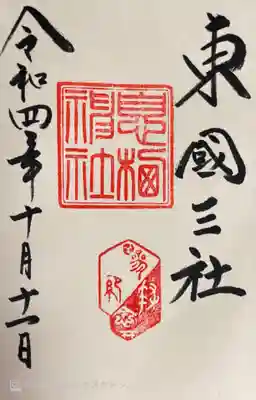 東國三社
息栖神社
令和四年十月十一日